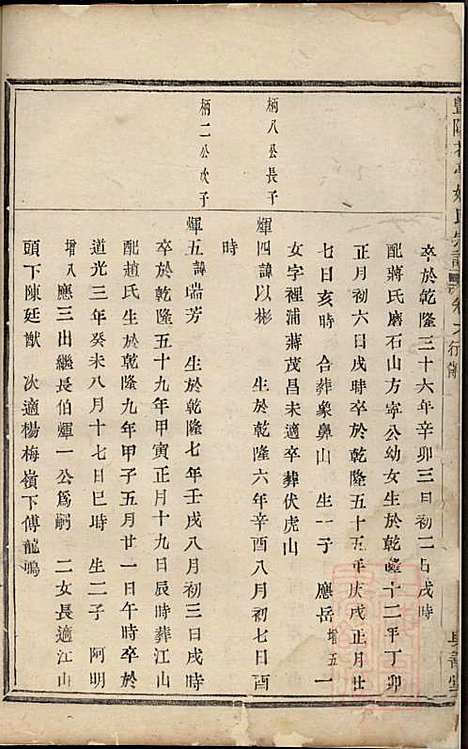 卒於乾隆三十六年辛卯三月初二日戌時
配蔣氏磨石山方寄公幼女生於乾隆十二年丁卯
正月初六日戌時卒於乾隆五十五年庚戌正月廿
七日亥時 合葬象鼻山 生一子 應岳增五 一
女字裡浦蔣茂昌未適卒葬伏虎山
柄八公長子
輝四諱以彬 生於乾隆六年辛酉八月初七日酉
時
柄二公次子
輝五諱瑞芳 生於乾隆七年壬戌八月初三日戌時
卒於乾隆五十九年甲寅正月十九日辰時葬江山
配趙氏生於乾隆九年甲子五月廿一日午時卒於
道光三年癸未八月十七日巳時 生二子 阿明
增八 應三出繼長伯輝一公爲嗣 二女長適江山
頭下陳廷猷 次適楊梅嶺下傅龍鳴